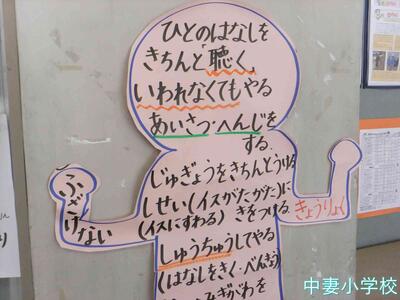 ひとのはなしを
きちんと「聴く」
いわれなくてもやる
あいさつ・へんじを
する
じゅぎょうをきちんとうける
しせい(イスがたがた)に
(イスにすわる) きをつける
しゅうちゅうしてやる
(はなしをきく・べんきょう)
ふざけない
きょうりょく
中妻小学校